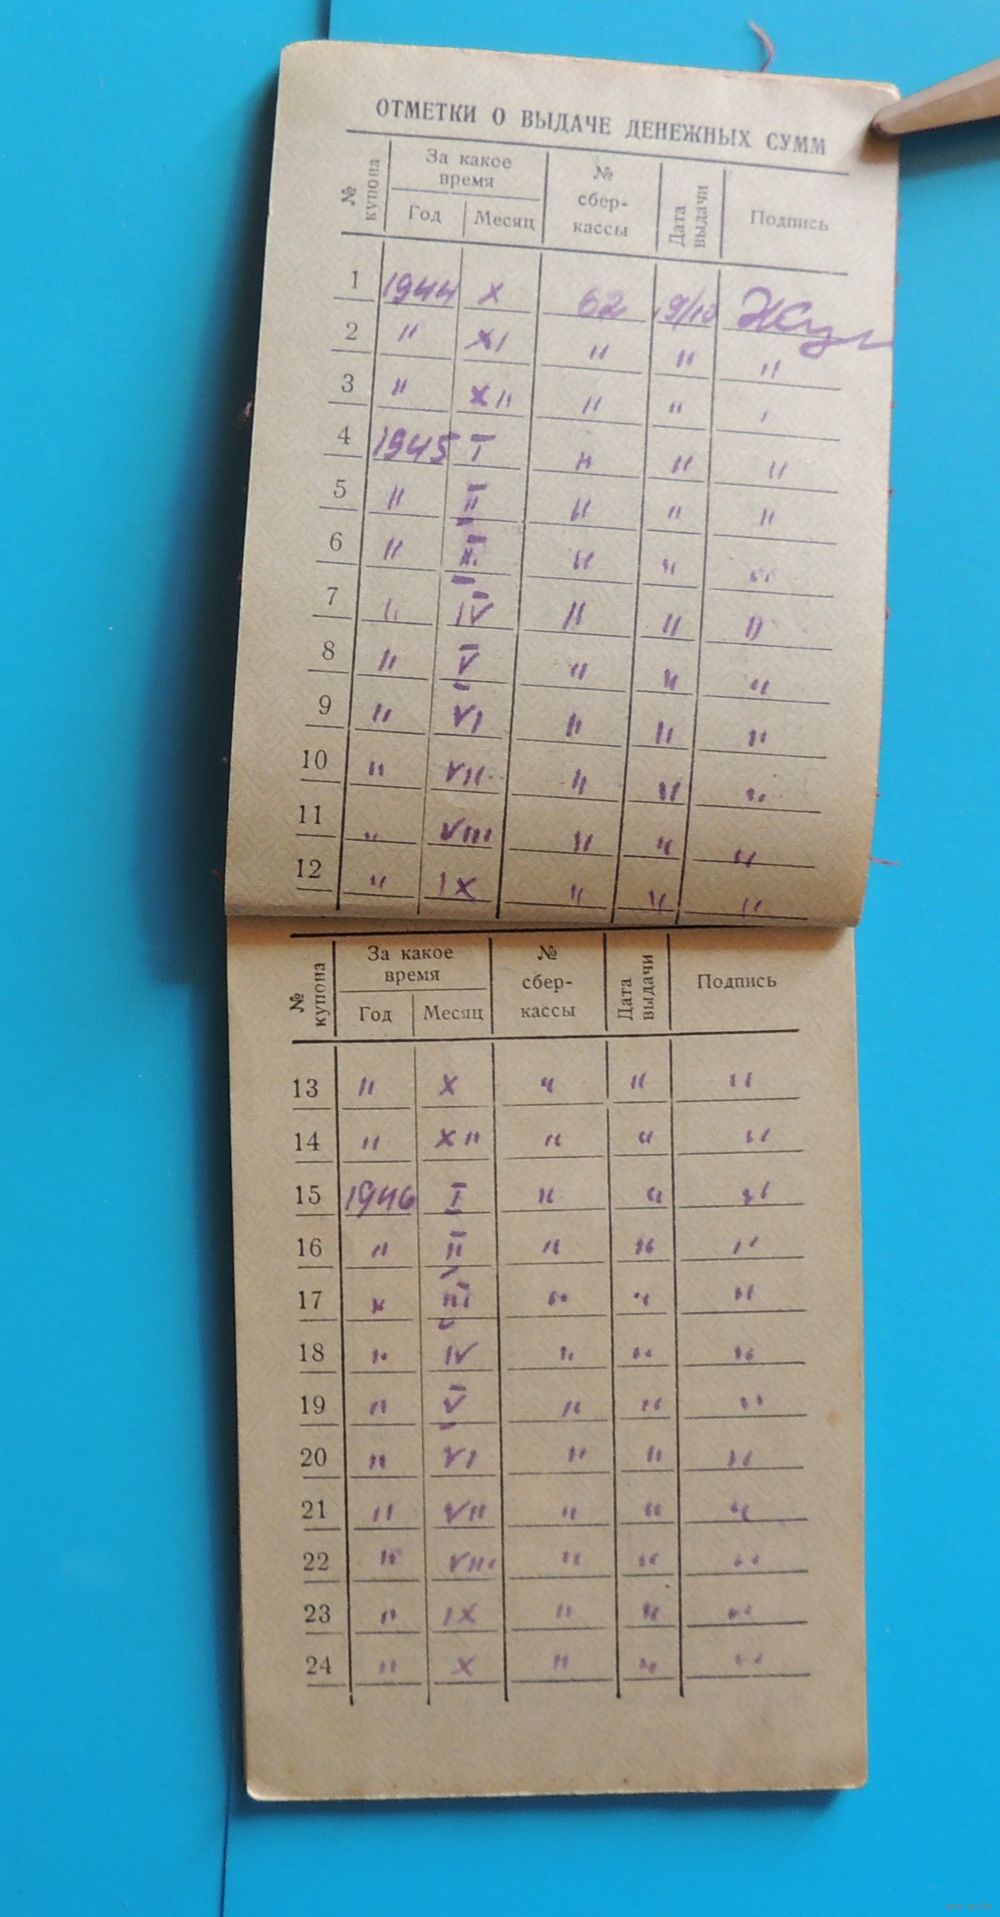 ОТМЕТКИ О ВЫДАЧЕ ДЕНЕЖНЫХ СУММ
№ купона За какое время № сбер-кассы Дата выдачи Подпись
Год Месяц
1 1944 X 62 19/10
2 " XI " " "
3 " XII " " "
4 1945 I " " "
5 " II " " "
6 " III " " "
7 " IV " " "
8 " V " " "
9 " VI " " "
10 " VII " " "
11 " VIII " " "
12 " IX " " "
№ купона За какое время № сбер-кассы Дата выдачи Подпись
Год Месяц
13 " X " " "
14 " XII " " "
15 1946 I " " "
16 " II " " "
17 " III " " "
18 " IV " " "
19 " V " " "
20 " VI " " "
21 " VII " " "
22 " VIII " " "
23 " IX " " "
24 " X " " "